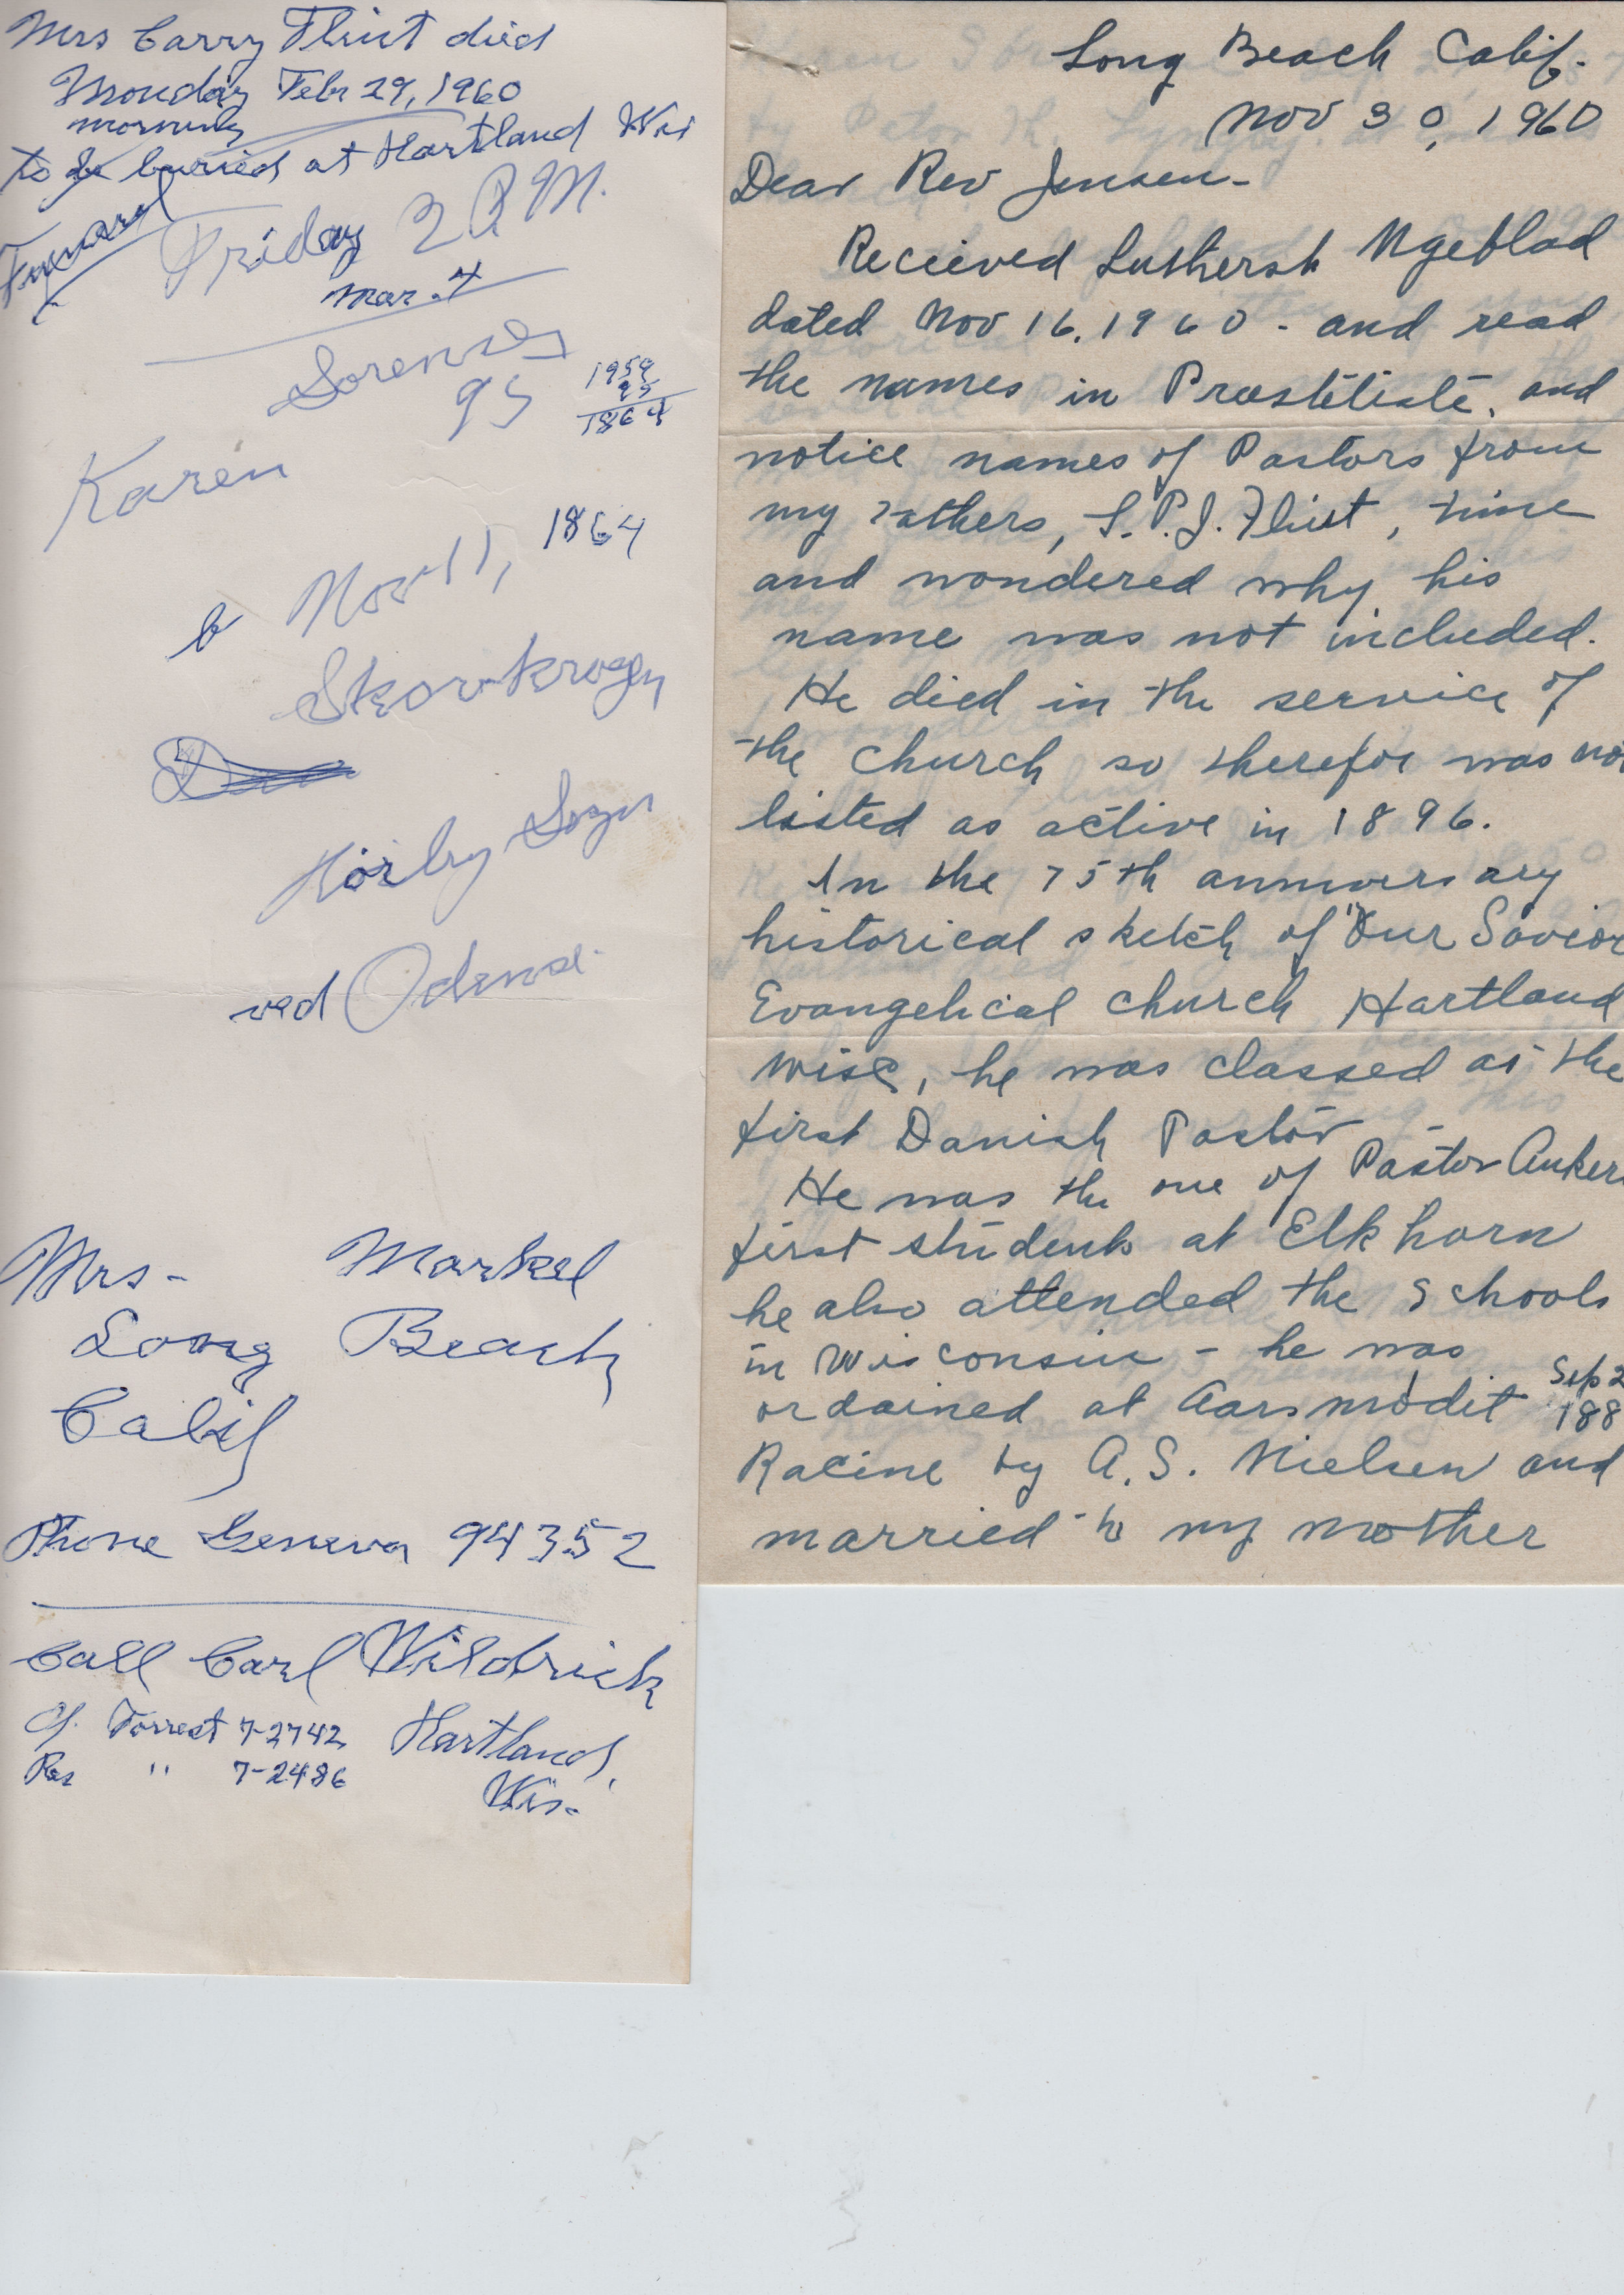 Mrs Carry Flint died
Monday Febr 29, 1960
morning
to be buried at Hartland Wis
Funeral
Friday 2 P.M.
Mar. 4
Sorensen
95
1959
95
1864
Karen
b Nov 11, 1864
Skovkrogen
Hörby Sogn
ved Odense.
Mrs- Markel
Long Beach
Calif
Phone Geneva 94352
Call Carl Wildrick
Of. Forrest 7-2742 Hartland,
Res " 7-2486
Wis.
Long Beach Calif.
Nov 30, 1960
Dear Rev Jensen-
Recieved Luthersk Ugeblad
dated Nov 16. 1960 - and read
the names in Præsteliste, and
notice names of Pastors from
my Fathers, L.P.J. Flint, time
and wondered why his
name was not included.
He died in the service of
the church so therefor was not
listed as active in 1896.
In the 75th anniversary
historical sketch of "Our Savior
Evangelical church Hartland
Wisc, he was classed as the
first Danish Pastor
He was the one of Pastor Ankers
first students at Elk horn
he also attended the schools
in Wisconsin - he was
ordained at Aarsmödet Sep 2
188
Racine by A.S. Nielsen and
married to my mother